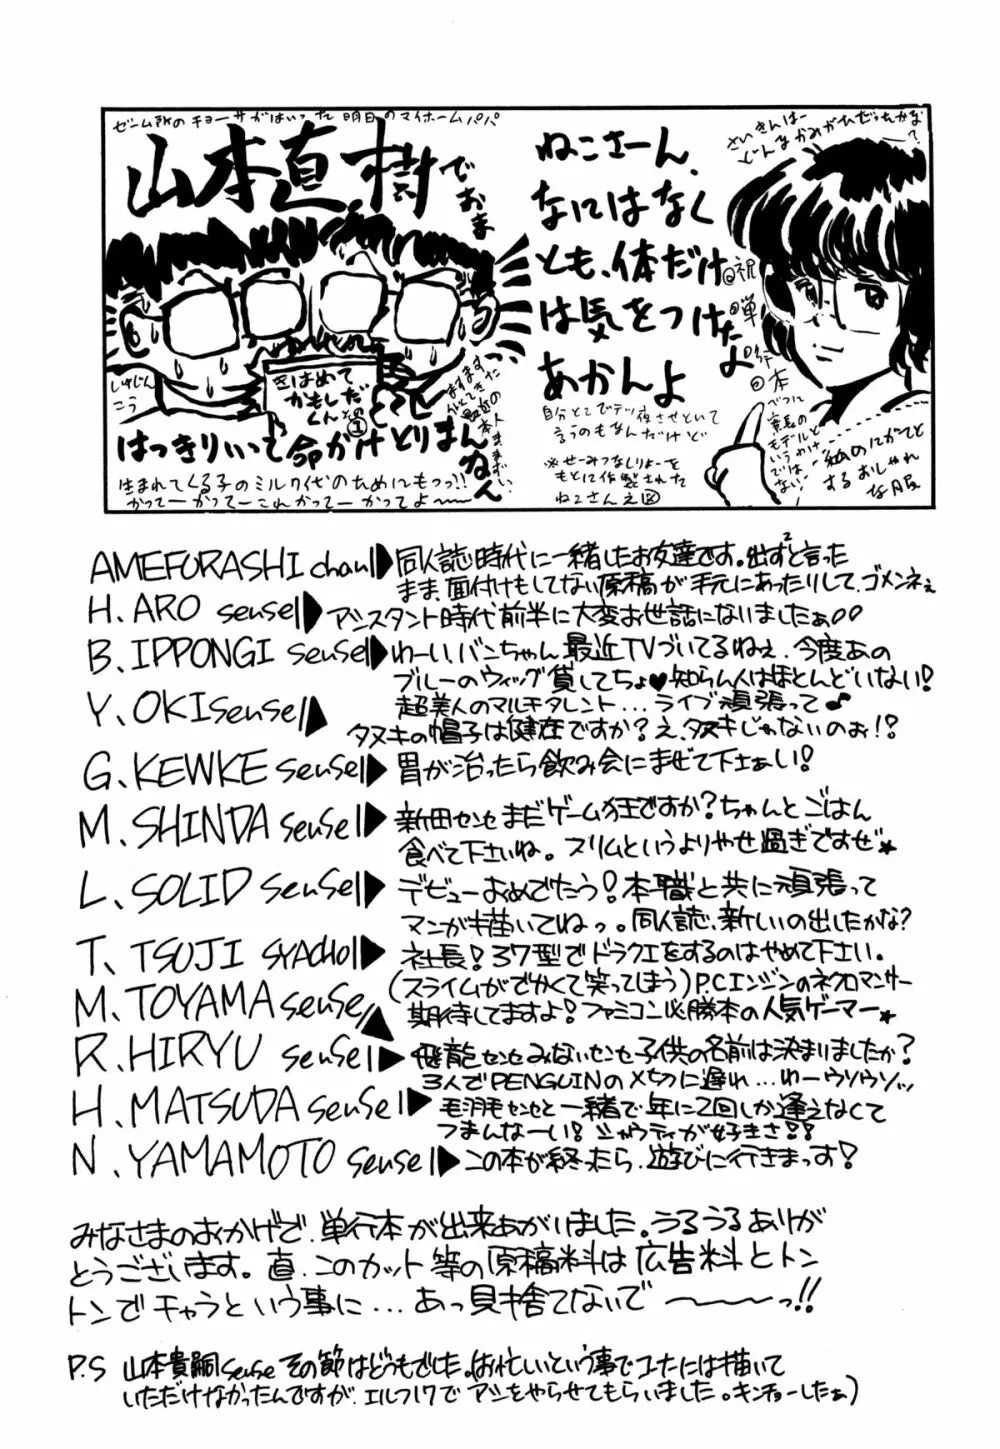 ゼーム所のチョーサがはいった明日のマイホームパパ
山本直樹で
おま
はっきりいって命がけとりまんねん
生まれてくる子のミルク代のためにもっっ!!
かってー かってー これかってー かってよ〜〜
ねこさーん、
なにはなく
とも、体だけ
は気をつけたよ
あかんよ
自分とこでテツ夜させといて
言うのもなんだけど
※せーみつなしりょーを
もとに作製された
ねこさんえ図
さいきんは
祝
単
行
本
べつに
モデルと
いうわけ
では
ない!
私のにがてと
するおしゃれ
な服
AMEFURASHI chan▶同人誌時代に一緒したお友達です。出ず²と言った
まま、面付けもしてない原稿が手元にあったりして、ゴメンネぇ
H. ARO sensei▶アシスタント時代前半に大変お世話にないましたぁ
B. IPPONGI sensei▶わーい、バンちゃん最近TVづいてるねぇ、今度あの
ブルーのウィッグ貸してちょ♥知らん人はほとんどいない!
Y. OKI sensei▶超美人のマルチタレント…ライブ頑張って♪
タヌキの帽子は健在ですか?え、タヌキじゃないのぉ!?
G. KEWKE sensei▶胃が治ったら飲み会にまぜて下さぁい!
M. SHINDA sensei▶新田センセまだゲーム狂ですか?ちゃんとごはん
食べて下さいね。スリムというよりやせ過ぎですぜ★
L. SOLID sensei▶デビューおめでとう!本職と共に頑張って
マンガ描いてねっ。同人誌、新しいの出したかな?
T. TSUJI SYACHO▶社長!37型でドラクエをするのはやめて下さい。
(スライムがでかくて笑ってしまう)
M. TOYAMA sensei▶P.Cエンジンのネクロマンサー
期待してますよ!ファミコン必勝本の人気ゲーマー★
R. HIRYU sensei▶飛龍センセみないセンセ子供の名前は決まりましたか?
3人でPENGUINの〆切に遅れ…わーウソウソッ
H. MATSUDA sensei▶毛羽毛センセと一緒で年に2回しか逢えなくて
つまんなーい!シャウティが好きさ!!
N. YAMAMOTO sensei▶この本が終ったら、遊びに行きまっす!
みなさまのおかげで、単行本が出来あがいました。うるうるありが
とうございます。直、このカット等の原稿料は広告料とトン
トンでチャラという事に…あっ見捨てないで〜〜っ!!
P.S 山本貴嗣sensei その節はどうもでした。(お忙しいという事でコチには描いて
いただけなかったんですが、エルフ17でアシをやらせてもらいました。キンチョーしたぁ)